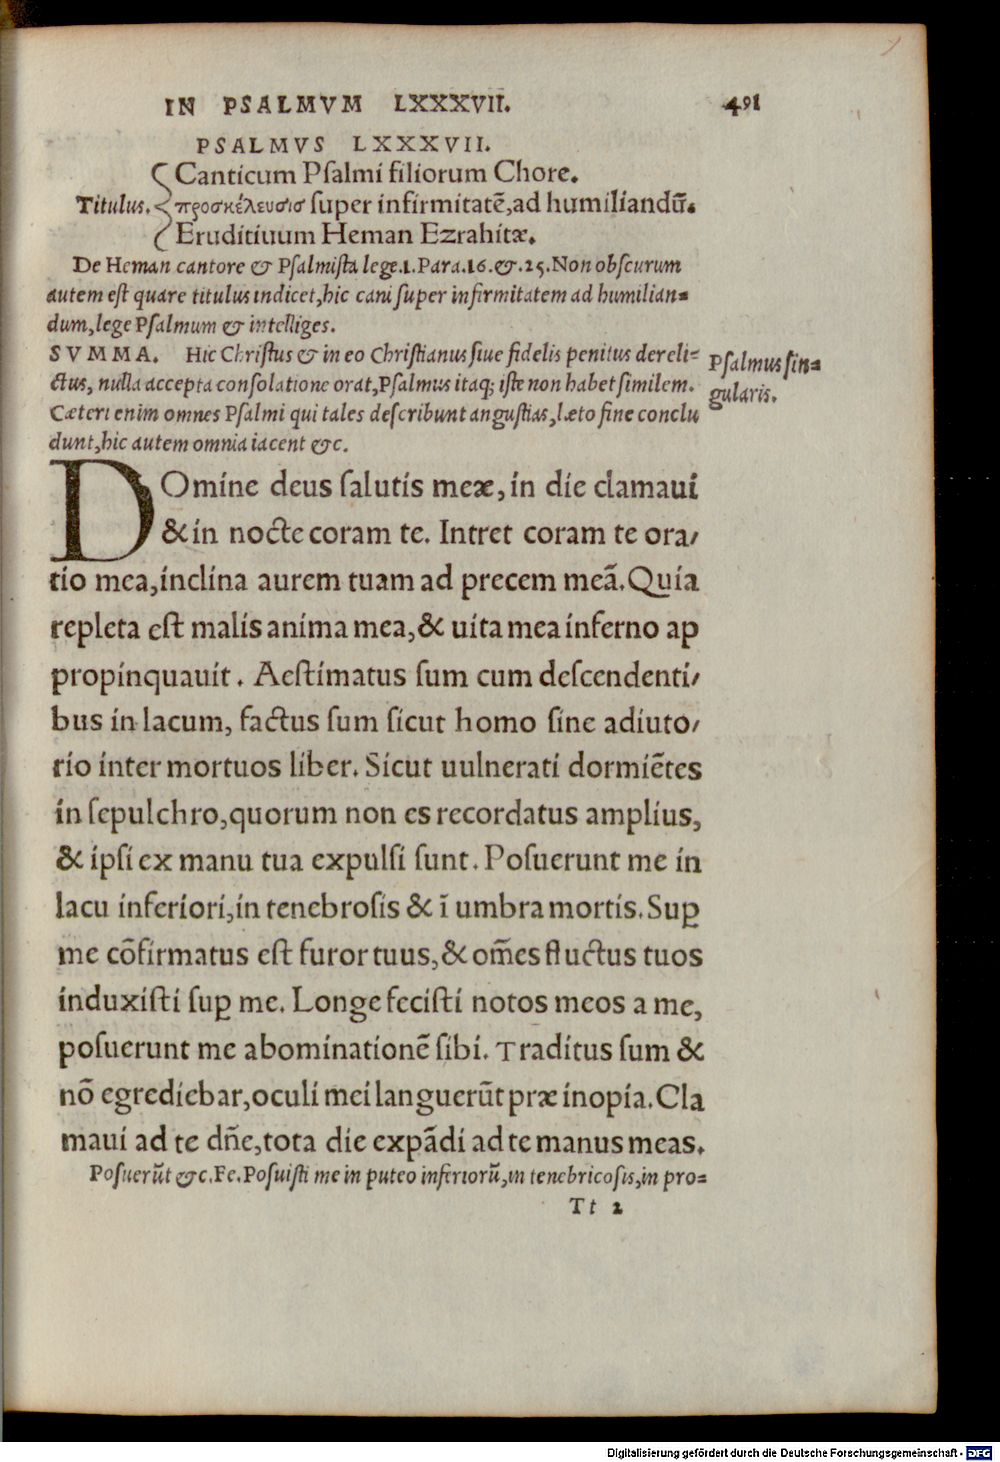 IN PSALMVM LXXXVII. 491
PSALMVS LXXXVII.
Canticum Psalmi filiorum Chore.
Titulus. προσκέλευσισ ſuper infirmitatē,ad humiliandū.
Eruditiuum Heman Ezrahitæ.
De Heman cantore & Pſalmiſta lege.1.Para.16.&.25.Non obſcurum
autem eſt quare titulus indicet,hic cani ſuper infirmitatem ad humilian=
dum,lege Pſalmum & intelliges.
SVMMA. Hic Chriſtus & in eo Chriſtianus ſiue fidelis penitus dereli=
ctus, nulla accepta conſolatione orat,Pſalmus itaq; iſte non habet ſimilem.
Cæteri enim omnes Pſalmi qui tales deſcribunt anguſtias,læto fine conclu
dunt,hic autem omnia iacent &c.
Pſalmus ſin=
gularis.
DOmine deus ſalutis meæ,in die clamaui
& in nocte coram te. Intret coram te ora/
tio mea,inclina aurem tuam ad precem meā.Quia
repleta eſt malis anima mea,& uita mea inferno ap
propinquauit. Aeſtimatus ſum cum deſcendenti/
bus in lacum, factus ſum ſicut homo ſine adiuto/
rio inter mortuos liber. Sicut uulnerati dormiētes
in ſepulchro,quorum non es recordatus amplius,
& ipſi ex manu tua expulſi ſunt. Poſuerunt me in
lacu inferiori,in tenebroſis & ī umbra mortis.Suꝑ
me cōfirmatus eſt furor tuus,& om̄es fluctus tuos
induxiſti ſuꝑ me. Longe feciſti notos meos a me,
poſuerunt me abominationē ſibi. Traditus ſum &
nō egrediebar,oculi mei languerūt præ inopia.Cla
maui ad te dn̄e,tota die expādi ad te manus meas.
Poſuerūt &c.Fe.Poſuiſti me in puteo inferiorū,in tenebricoſis,in pro=
Tt 2
Digitalisierung gefördert durch die Deutsche Forschungsgemeinschaft - DFG